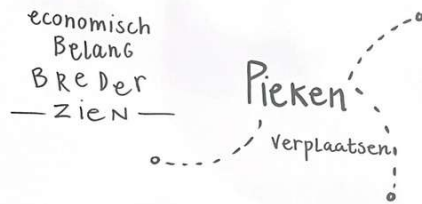 economisch
BELANG
BREDER
ZIEN
Pieken
verplaatsen